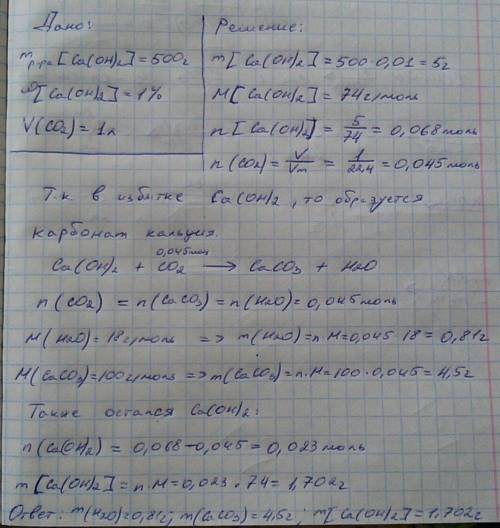 Дано:
m р-ра [Ca(OH)₂] = 500г
ω[Ca(OH)₂] = 1%
V(CO₂) = 1л
Решение:
m[Ca(OH)₂] = 500·0,01 = 5г
M[Ca(OH)₂] = 74г/моль
n[Ca(OH)₂] = 5/74 = 0,068моль
n(CO₂) = V/Vm = 1/22,4 = 0,045моль
Т.к. в избытке Ca(OH)₂, то образуется
карбонат кальция.
0,045моль
Ca(OH)₂ + CO₂ → CaCO₃ + H₂O
n(CO₂) = n(CaCO₃) = n(H₂O) = 0,045моль
M(H₂O) = 18г/моль => m(H₂O) = n·M = 0,045·18 = 0,81г
M(CaCO₃) = 100г/моль => m(CaCO₃) = n·M = 100·0,045 = 4,5г
Также остался Ca(OH)₂:
n(Ca(OH)₂) = 0,068 - 0,045 = 0,023моль
m[Ca(OH)₂] = n·M = 0,023·74 = 1,702г
Ответ: m(H₂O) = 0,81г; m(CaCO₃) = 4,5г; m[Ca(OH)₂] = 1,702г